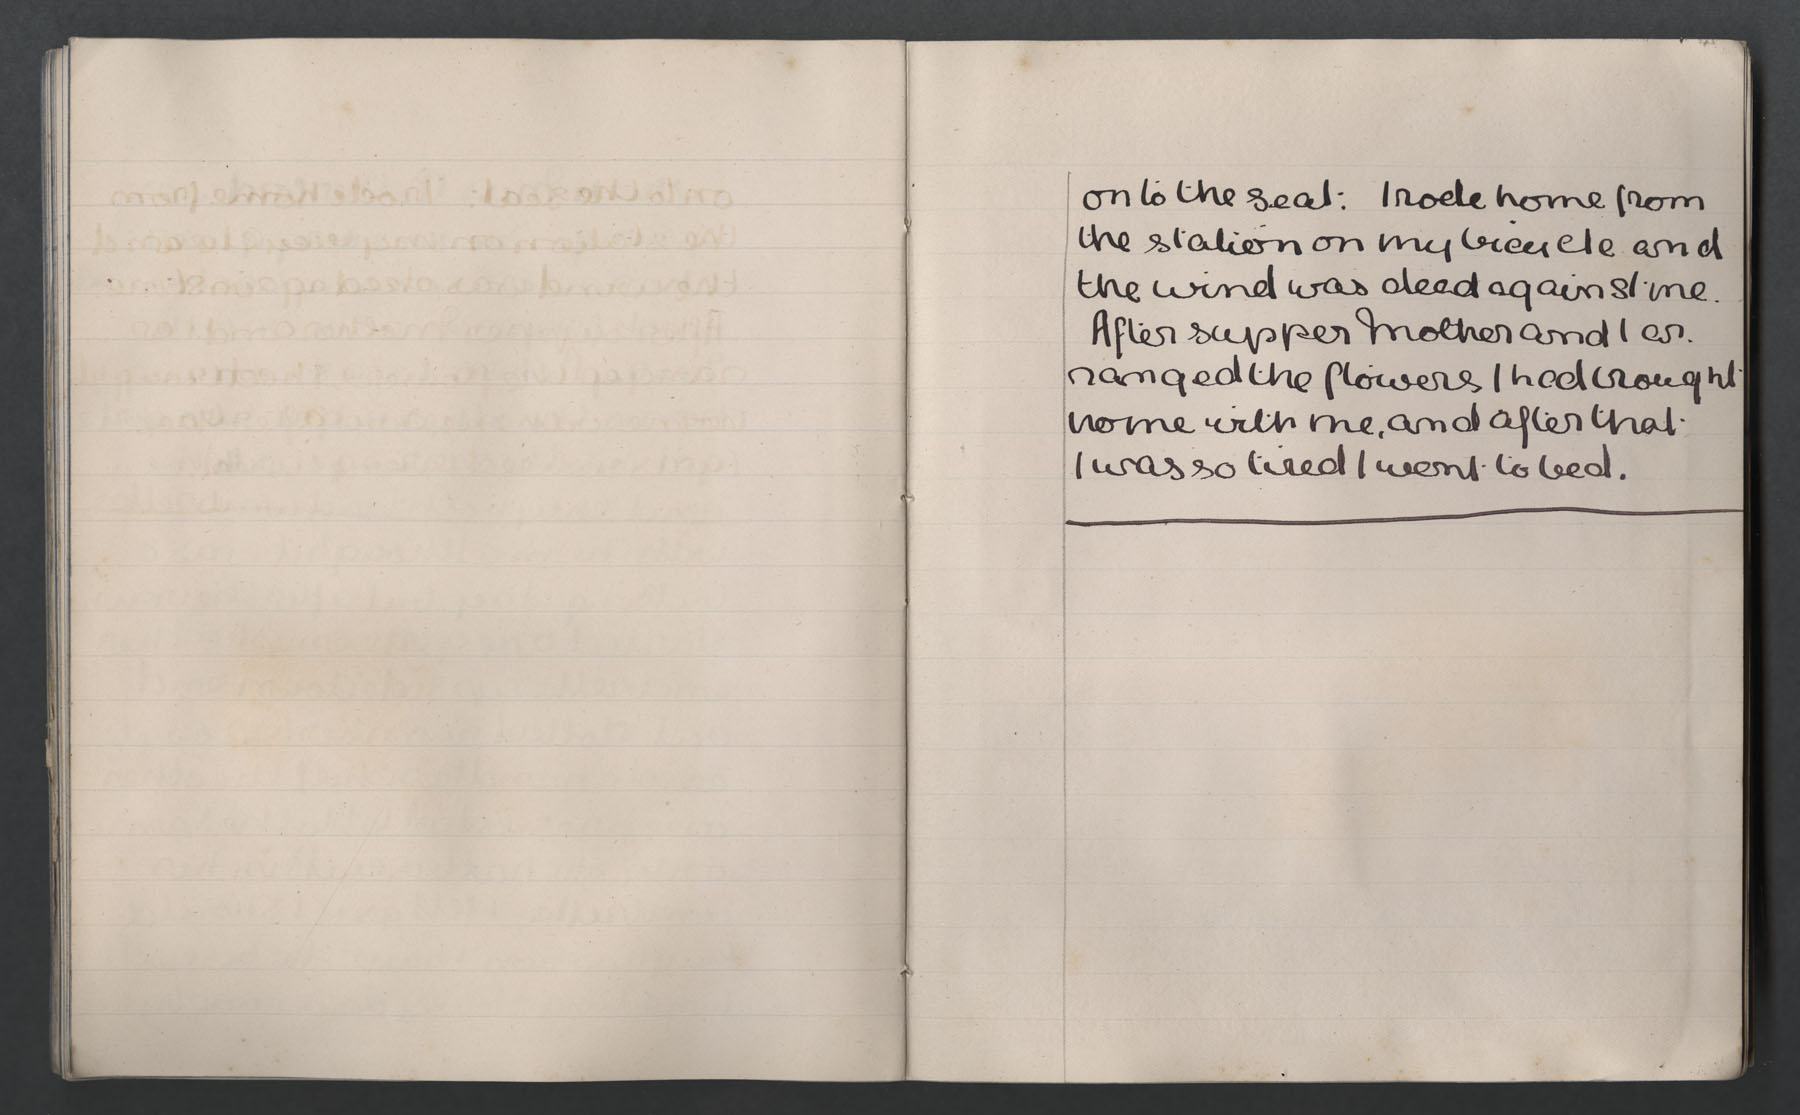 onto the seat. I rode home from
the station on my bicycle and
the wind was dead against me.
After supper Mother and I ar-
ranged the flowers I had brought
home with me, and after that
I was so tired I went to bed.